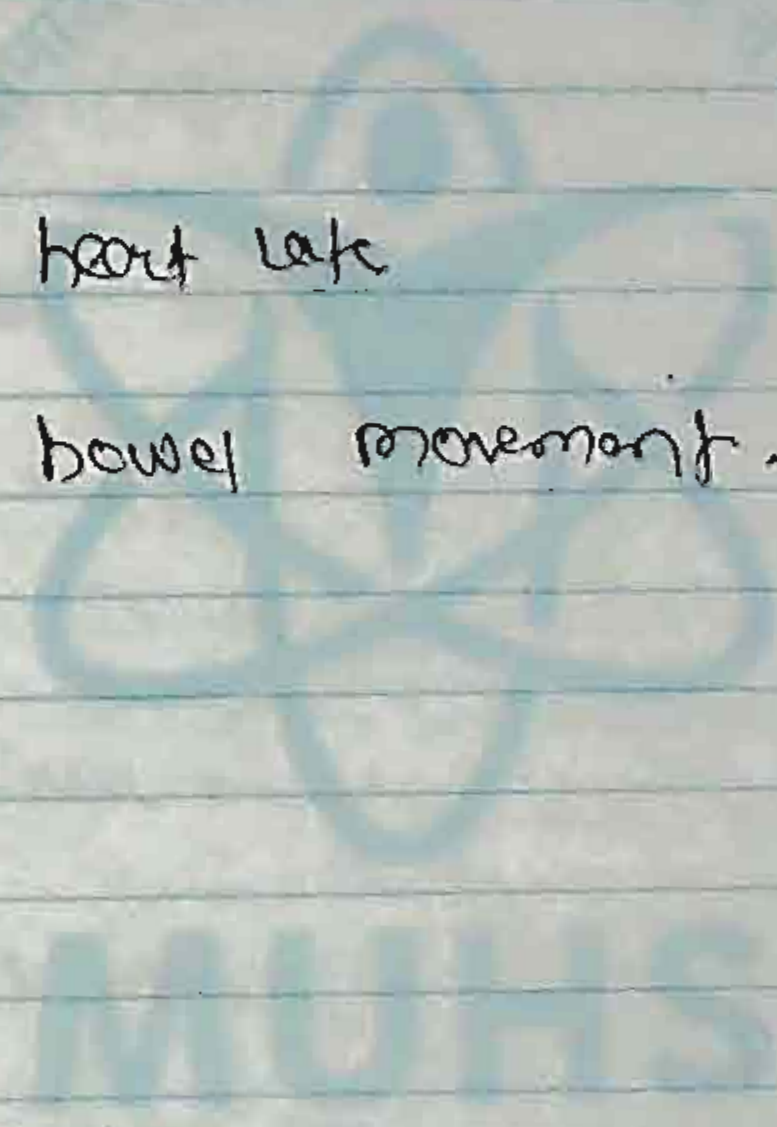 heart rate
bowel movement.
MUHS